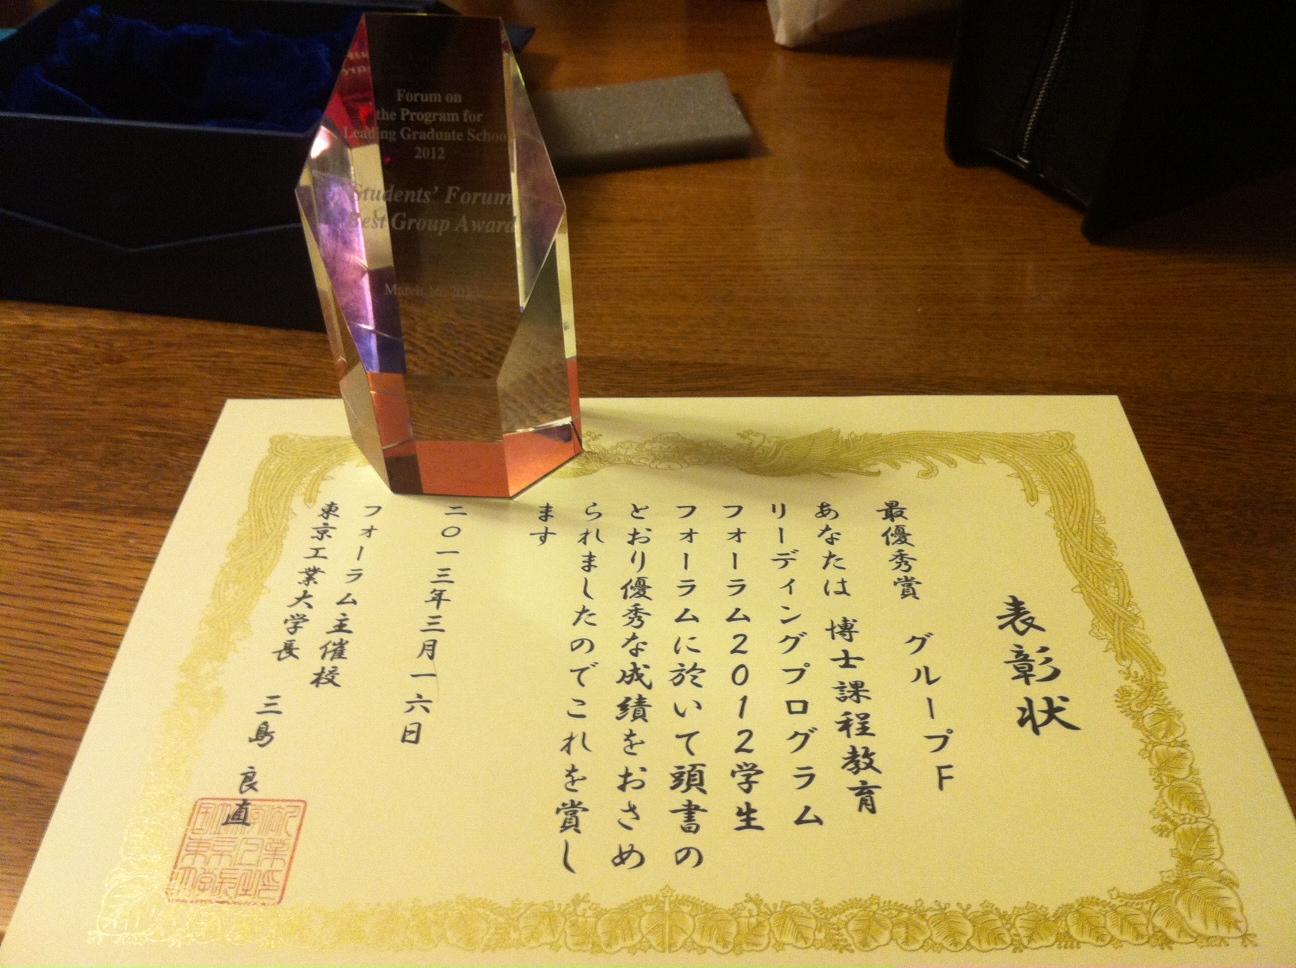 Forum on
the Program for
Leading Graduate School
2012
Students' Forum
Best Group Award
March 16, 2013
表彰状
最優秀賞 グループF
あなたは 博士課程教育
リーディングプログラム
フォーラム2012学生
フォーラムに於いて頭書の
とおり優秀な成績をおさめ
られましたのでこれを賞し
ます
二〇一三年三月一六日
フォーラム主催校
東京工業大学長
三島 良直